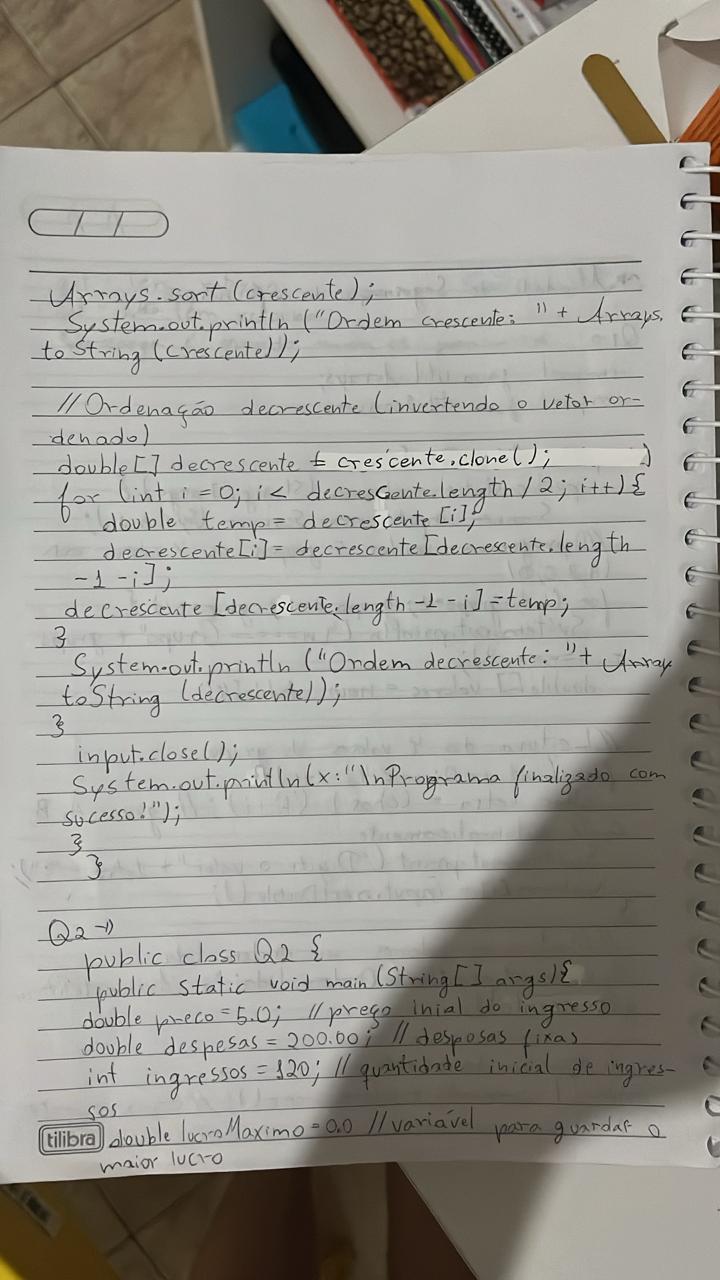 Arrays.sort(crescente);
System.out.println("Ordem crescente: " + Arrays.
toString(crescente));
//Ordenação decrescente (invertendo o vetor or-
denado)
double[] decrescente = crescente.clone();
for (int i = 0; i < decrescente.length / 2; i++){
double temp = decrescente[i];
decrescente[i] = decrescente[decrescente.length
-1-i];
decrescente[decrescente.length -1-i] = temp;
}
System.out.println("Ordem decrescente: "+ Array
toString (decrescente));
}
input.close();
System.out.println(x:"\nPrograma finalizado com
sucesso!");
}
}
Q2 →
public class Q2 {
public static void main (String[] args){
double preco = 5.0; //preço inial do ingresso
double despesas = 200.00; // desposas fixas
int ingressos = 120; // quantidade inicial de ingres-
sos
tilibra double lucroMaximo = 0.0 //variável para guardar o
maior lucro